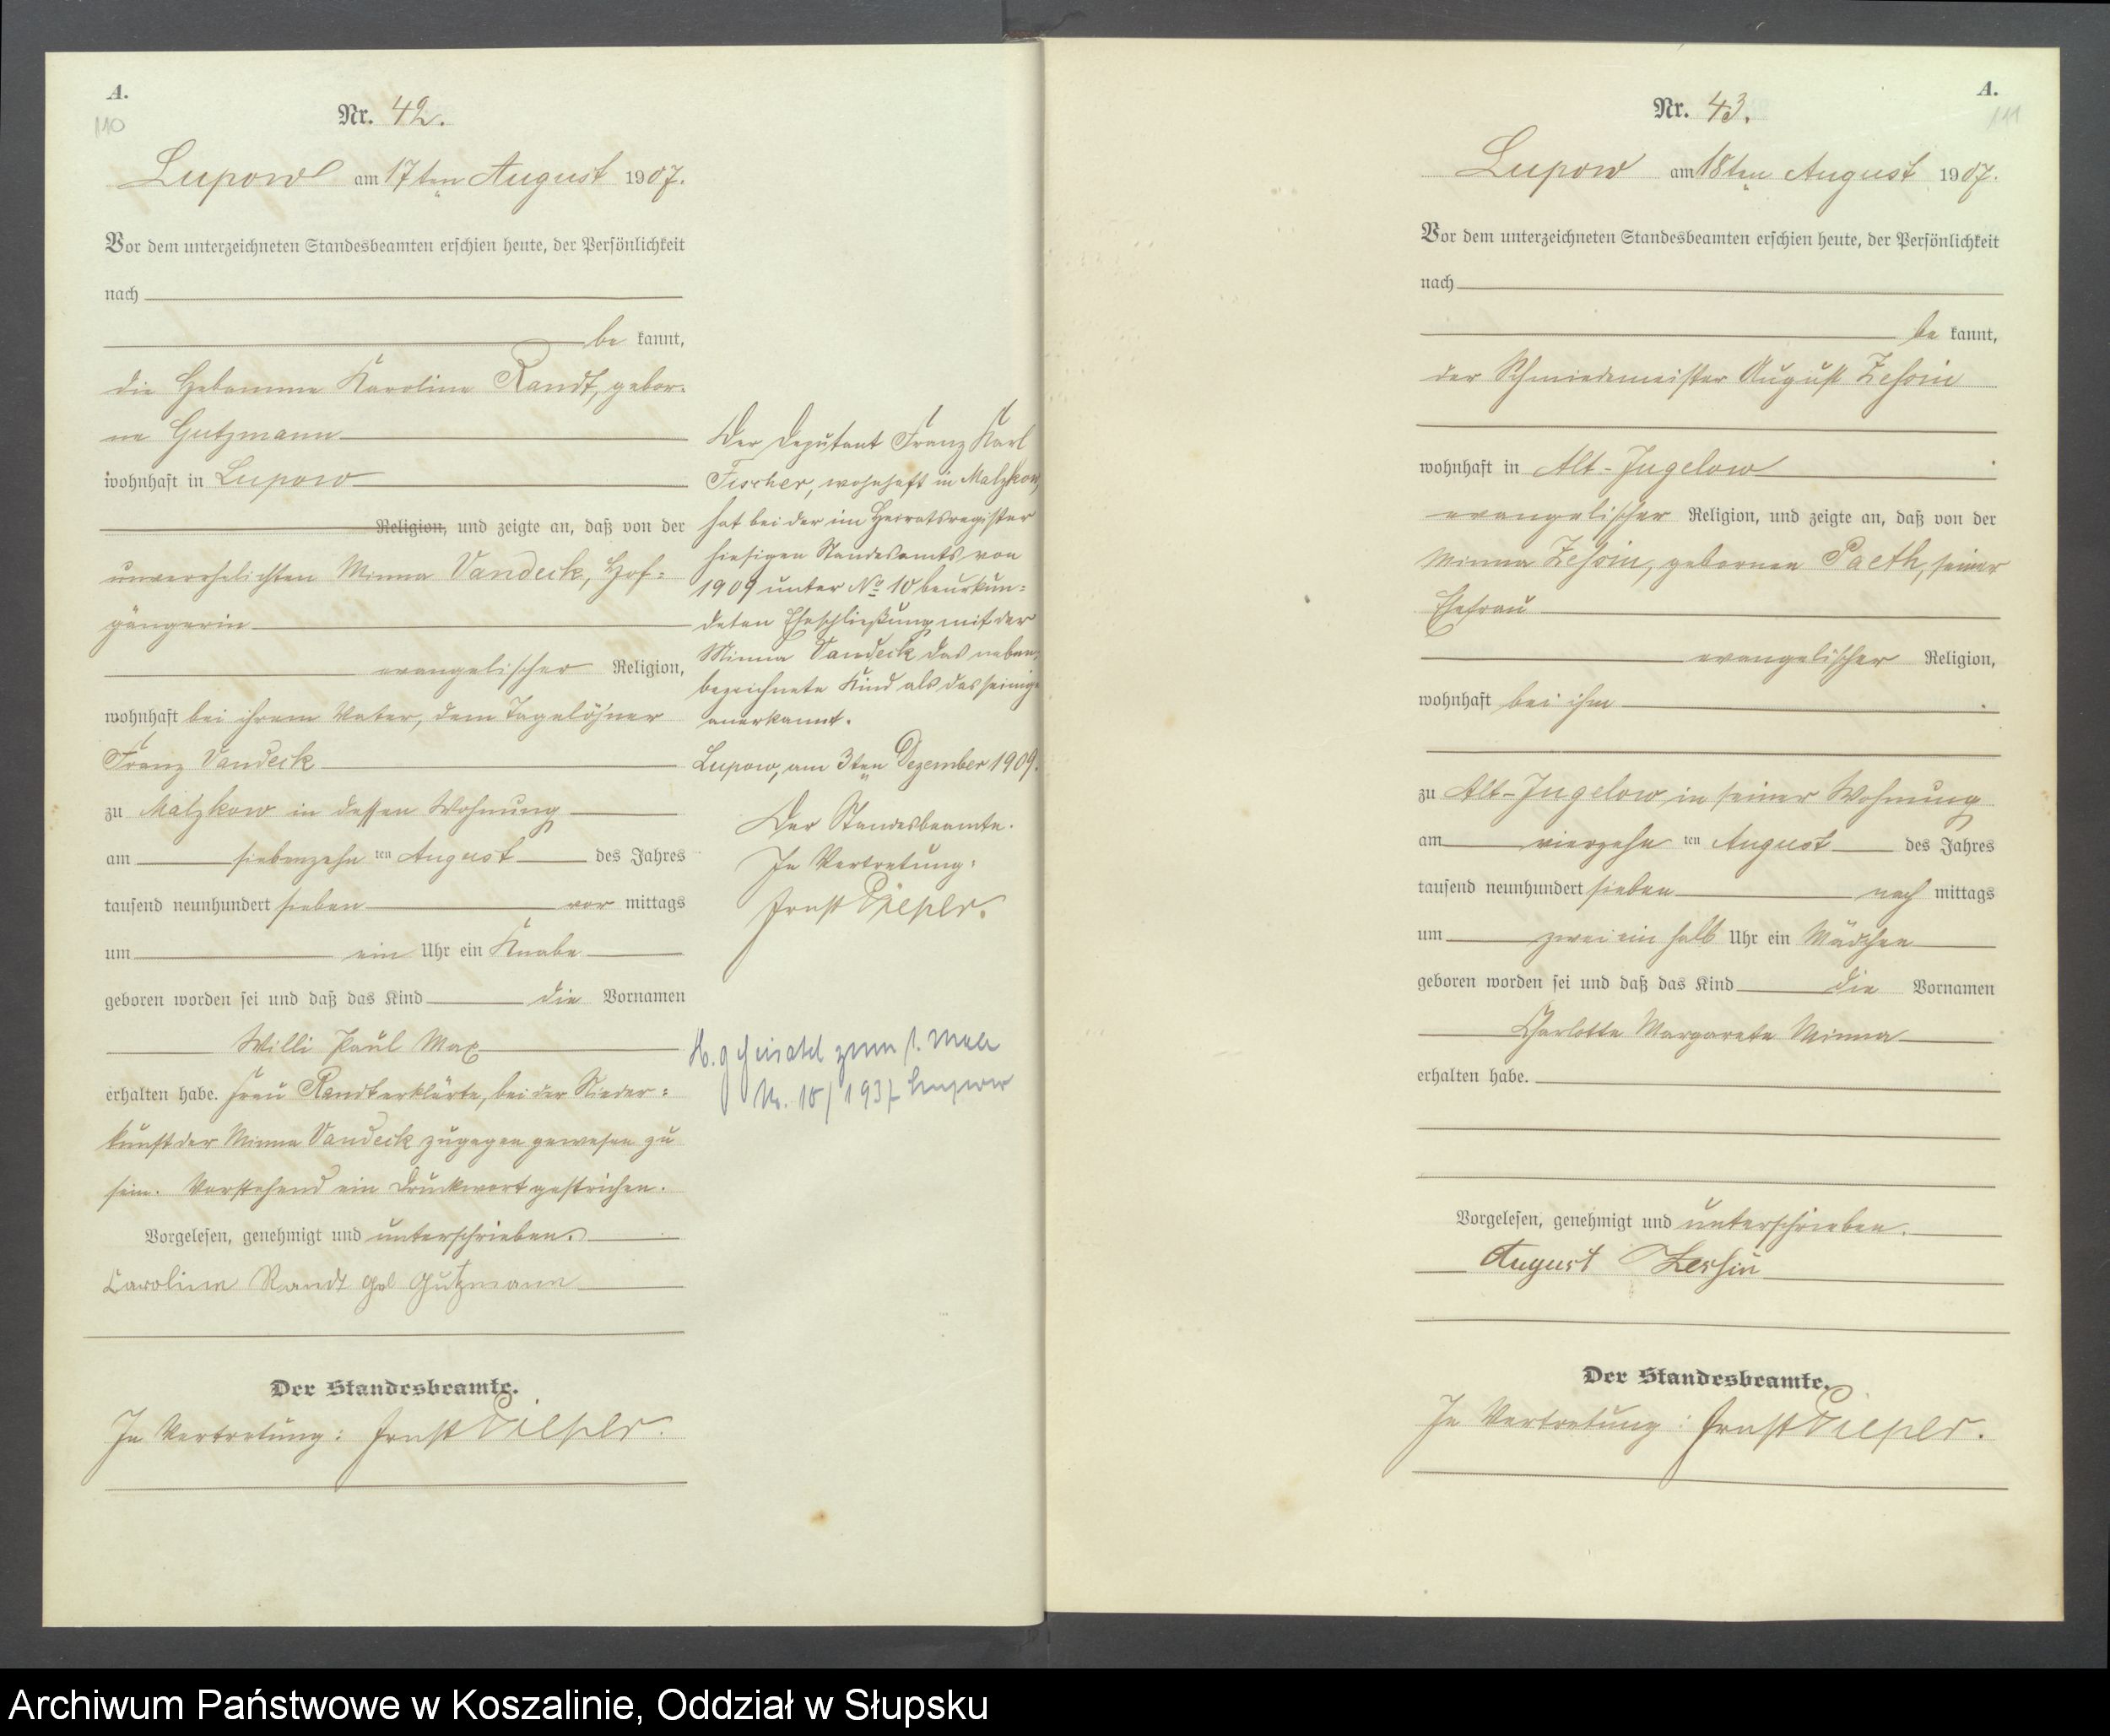 A.
110
Nr. 42.
Lupow am 17ten August 1907.
Vor dem unterzeichneten Standesbeamten erschien heute, der Persönlichkeit
nach
be kannt,
die Hebamme Karoline Randt, gebor-
ne Gutzmann
wohnhaft in Lupow
Religion, und zeigte an, daß von der
unverehelichten Minna Vandeck, Hof-
gängerin
evangelischer Religion,
wohnhaft bei ihrem Vater, dem Tagelöhner
Franz Vandeck
zu Malzkow in dessen Wohnung
am siebenzehn ten August des Jahres
tausend neunhundert sieben vor mittags
um ein Uhr ein Knabe
geboren worden sei und daß das Kind die Vornamen
Willi Paul Max
erhalten habe. Frau Randt erklärte, bei der Nieder-
kunft der Minna Vandeck zugegen gewesen zu
sein. Vorstehend ein Druckwort gestrichen.
Vorgelesen, genehmigt und unterschrieben.
Caroline Randt geb Gutzmann
Der Standesbeamte.
In Vertretung: Ernst Pieper.
Der Deputant Franz Karl
Fischer, wohnhaft in Malzkow,
hat bei der im Heiratsregister
hiesigen Standesamts von
1909 unter No 10 beurkun-
deten Eheschließung mit der
Minna Vandeck das neben-
bezeichnete Kind als das seinige
anerkannt.
Lupow, am 3ten Dezember 1909.
Der Standesbeamte.
In Vertretung:
Ernst Pieper.
zum 1. Male
Nr. 10/1937 Lupow
A.
111
Nr. 43.
Lupow am 18ten August 1907.
Vor dem unterzeichneten Standesbeamten erschien heute, der Persönlichkeit
nach
be kannt,
der Schmiedemeister August Zessin
wohnhaft in Alt-Jugelow
evangelischer Religion, und zeigte an, daß von der
Minna Zessin, gebornen Paeth, seiner
Ehefrau
evangelischer Religion,
wohnhaft bei ihm
zu Alt-Jugelow in seiner Wohnung
am vierzehn ten August des Jahres
tausend neunhundert sieben nach mittags
um zwei ein halb Uhr ein Mädchen
geboren worden sei und daß das Kind die Vornamen
Charlotte Margarete Minna
erhalten habe.
Vorgelesen, genehmigt und unterschrieben.
August Zessin
Der Standesbeamte.
In Vertretung: Ernst Pieper.
Archiwum Państwowe w Koszalinie, Oddział w Słupsku